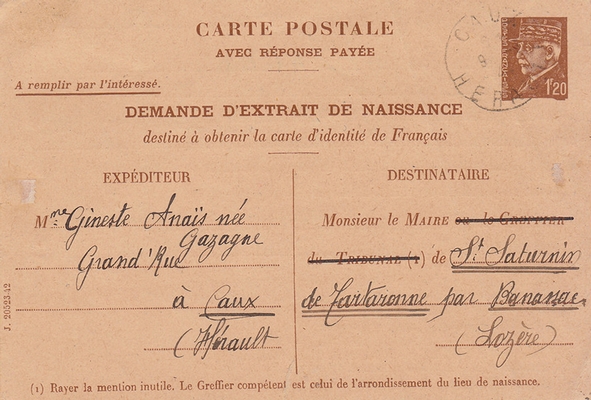 CARTE POSTALE
AVEC RÉPONSE PAYÉE
A remplir par l'intéressé.
1F20
DEMANDE D'EXTRAIT DE NAISSANCE
destiné à obtenir la carte d'identité de Français
EXPÉDITEUR
Mme Gineste Anaïs née
Gazagne
Grand'Rue
à Caux
(Hérault
DESTINATAIRE
Monsieur le MAIRE ou le GREFFIER
du TRIBUNAL (1) de St Saturnin
de Tartaronne par Banassac
(Lozère)
J. 20523-42
(1) Rayer la mention inutile. Le Greffier compétent est celui de l'arrondissement du lieu de naissance.